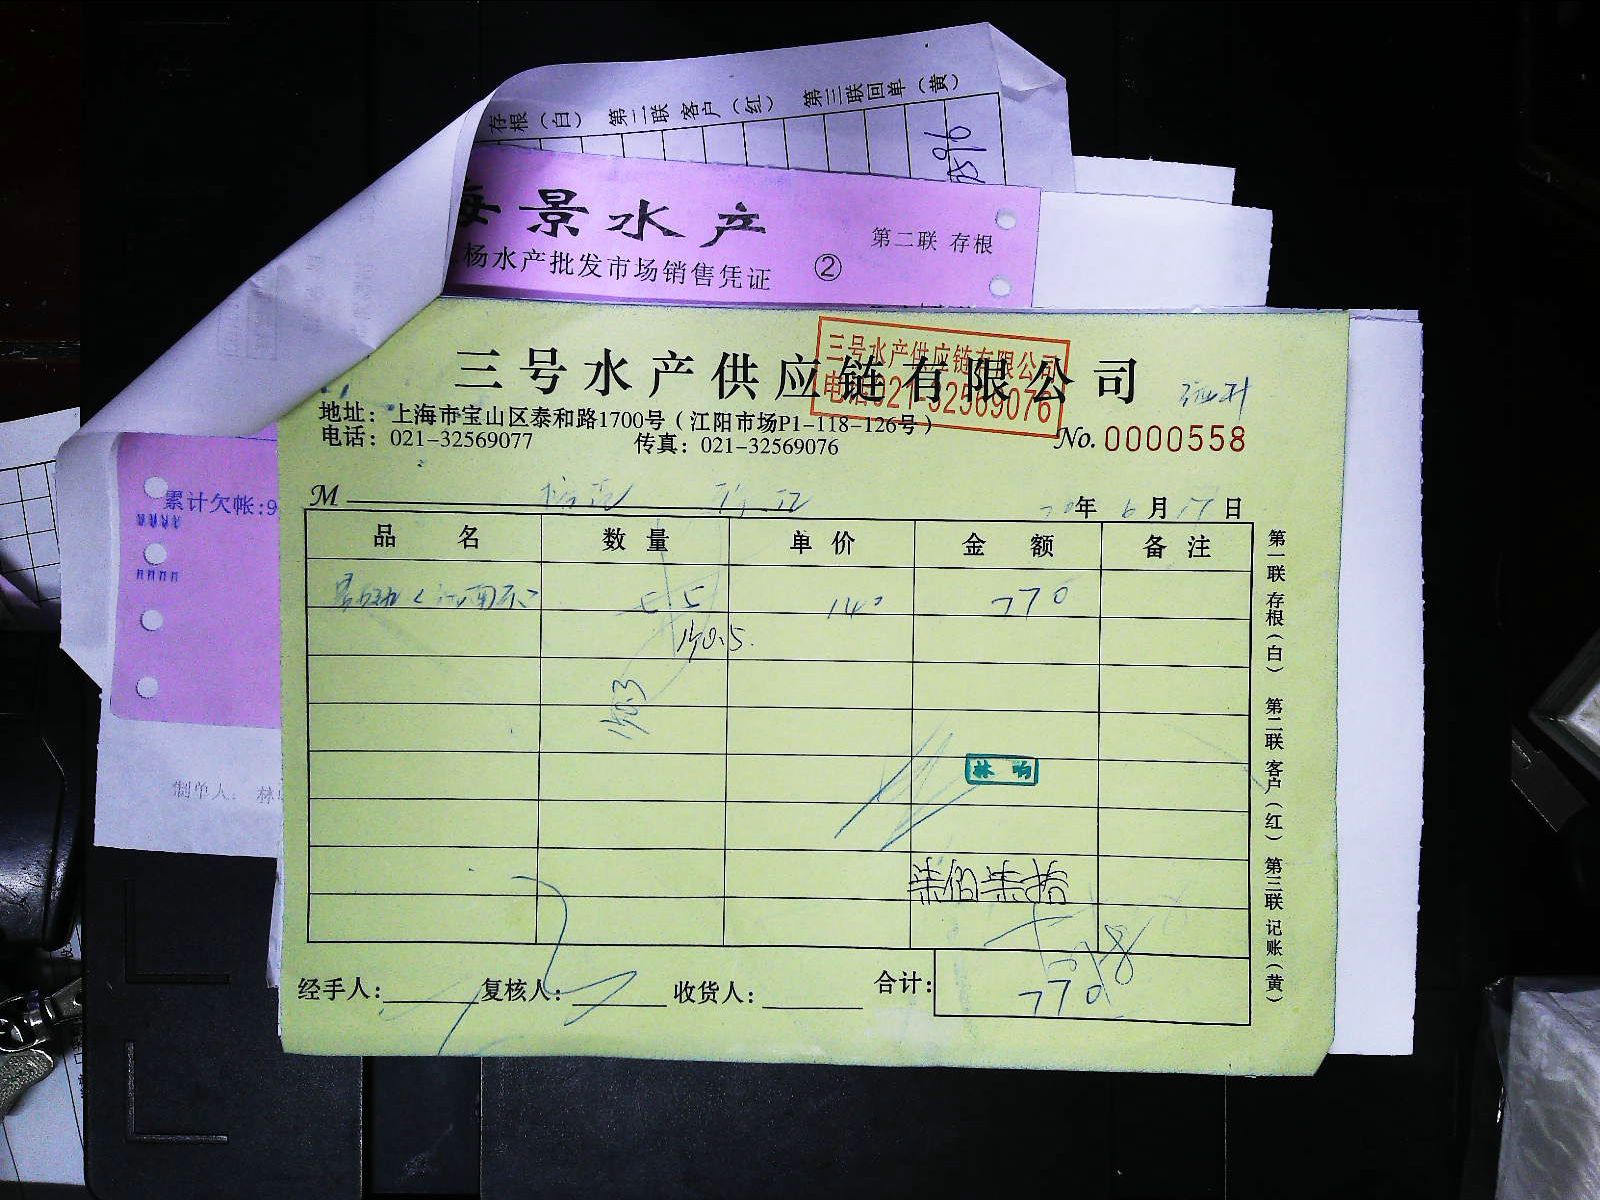 存根（白） 第二联 客户（红） 第三联回单（黄）
海景水产
杨水产批发市场销售凭证 ② 第二联 存根
三号水产供应链有限公司
三号水产供应链有限公司
电话021-32569076
地址：上海市宝山区泰和路1700号（江阳市场P1-118-126号）
电话：021-32569077 传真：021-32569076
No. 0000558
累计欠帐:9
M 20年 6月 17日
品名 数量 单价 金额 备注
5.5 140 770
140.5
140.3
林
柒佰柒拾
经手人: 复核人: 收货人: 合计: 770
第一联 存根（白） 第二联 客户（红） 第三联 记账（黄）
制单人: 林